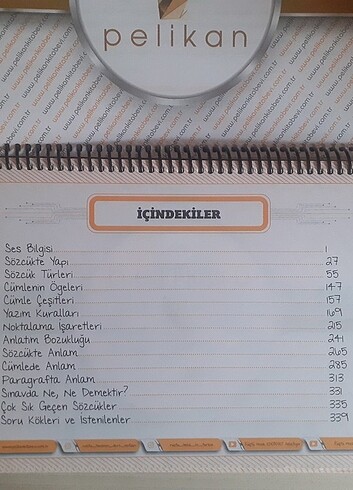 pelikan
www.pelikankitabevi.com.tr
İÇİNDEKİLER
Ses Bilgisi 1
Sözcükte Yapı 27
Sözcük Türleri 55
Cümlenin Ögeleri 147
Cümle Çeşitleri 157
Yazım Kuralları 169
Noktalama İşaretleri 215
Anlatım Bozukluğu 241
Sözcükte Anlam 265
Cümlede Anlam 285
Paragrafta Anlam 313
Sınavda Ne, Ne Demektir? 331
Çok Sık Geçen Sözcükler 335
Soru Kökleri ve İstenilenler 339